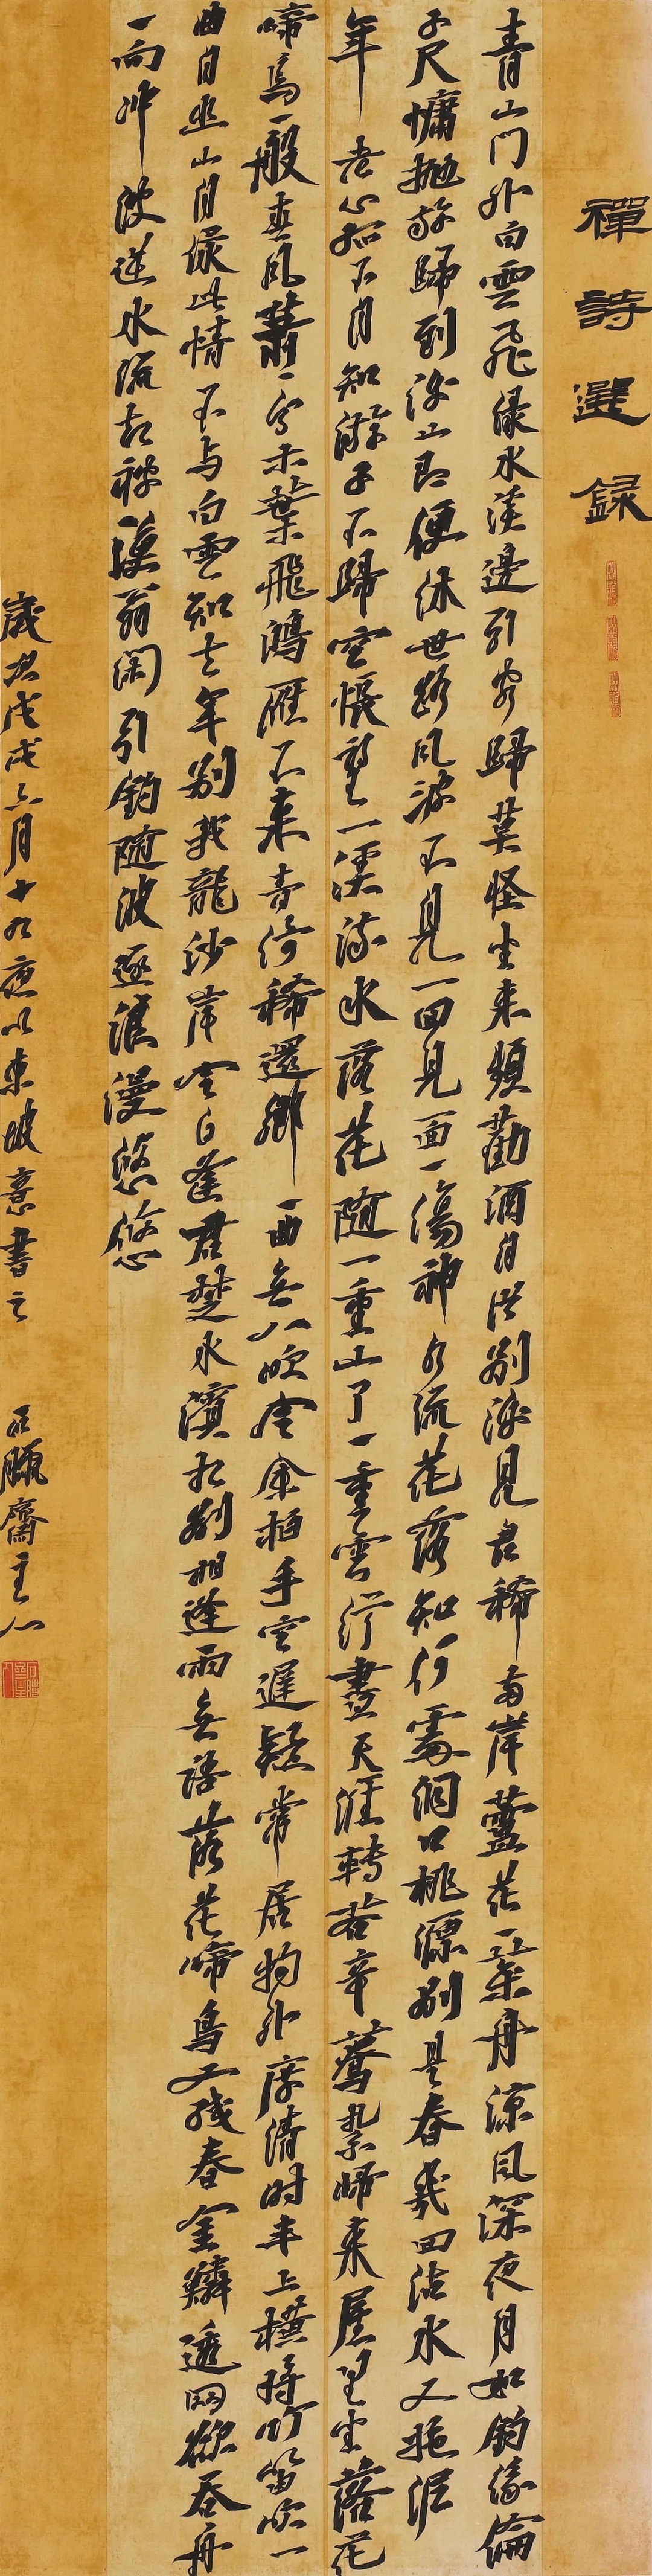 禪詩選録
青山門外白雲飛綠水溪邊引客歸莫怪坐來頻勸酒自從別後見君稀兩岸蘆花一葉舟涼風深夜月如鉤絲綸
千尺慵拋放歸到後山即便休世路風波不見一回見面一傷神水流花落知何處洞口桃源別是春幾回沾水又拖泥
年老心孤不自知游子不歸空悵望一溪流水落花隨一重山了一重雲行盡天涯轉苦辛驀紮歸來屋里坐落花
啼鳥一般春風蕭一字赤葉飛鴻雁不來音信稀還鄉一曲無人吹令余拍手空遲疑常居物外度清時牛上橫將竹笛吹一
曲自幽山自綠此情不与白雲知去年別我龍沙岸今日逢君楚水濱相別相逢兩無語落花啼鳥又殘春金鱗透網欲吞舟
一向冲波逆水流却被漁翁閑引釣隨波逐浪漫悠悠
歲次戊戌六月十九夜以東坡意書之
齋主人